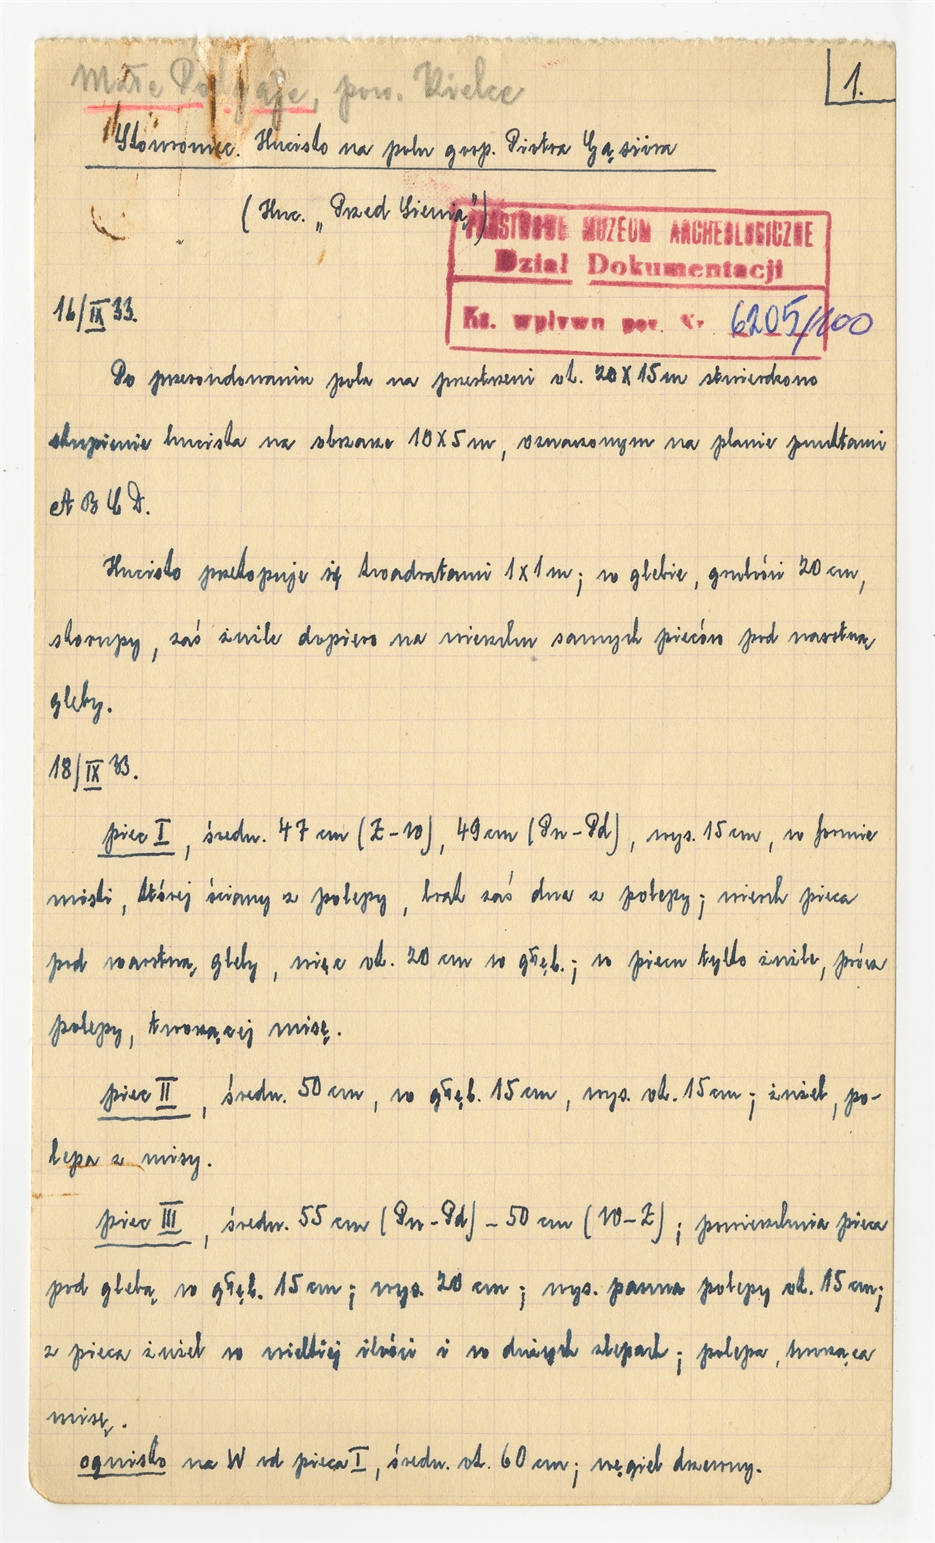 Małe Polgaje, pow. Kielce
1.
Słowroniec. Hucisko na polu gosp. Piotra Gąsiora
(Huc. „Przed Sienią”)
PAŃSTWOWE MUZEUM ARCHEOLOGICZNE
Dział Dokumentacji
Ks. wpływu poz. Nr 6205/100
16/IX 33.
Po przesondowaniu pola na przestrzeni ok. 20 x 15 m stwierdzono
skupienie huciska na obszarze 10 x 5 m, oznaczonym na planie punktami
A B C D.
Hucisko przekopuje się kwadratami 1 x 1 m; w glebie, grubości 20 cm,
skorupy, zaś żużle dopiero na wierzchu samych pieców pod warstwą
gleby.
18/IX 33.
piec I, średn. 47 cm (Z-W), 49 cm (Pn-Pd), wys. 15 cm, w formie
miski, której ściany z polepy, brak zaś dna z polepy; wierzch pieca
pod warstwą gleby, więc ok. 20 cm w głęb.; w piecu tylko żużle, prócz
polepy, tworzącej misę.
piec II, średn. 50 cm, w głęb. 15 cm, wys. ok. 15 cm; żużel, po-
lepa z misy.
piec III, średn. 55 cm (Pn-Pd) - 50 cm (W-Z); powierzchnia pieca
pod glebą w głęb. 15 cm; wys. 20 cm; wys. pasma polepy ok. 15 cm;
z pieca żużel w wielkiej ilości i w dużych zlepach; polepa, tworząca
misę.
ognisko na W od pieca I, średn. ok. 60 cm; węgiel drzewny.